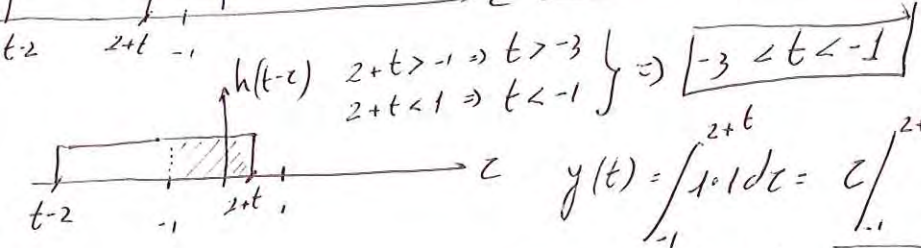 t-2 2+t -1 τ
h(t-τ) 2+t>-1 ⇒ t>-3
2+t<1 ⇒ t<-1 } ⇒ -3 < t < -1
t-2 -1 2+t 1 τ
y(t) = ∫_{-1}^{2+t} 1·1dτ = τ/_{-1}^{2+